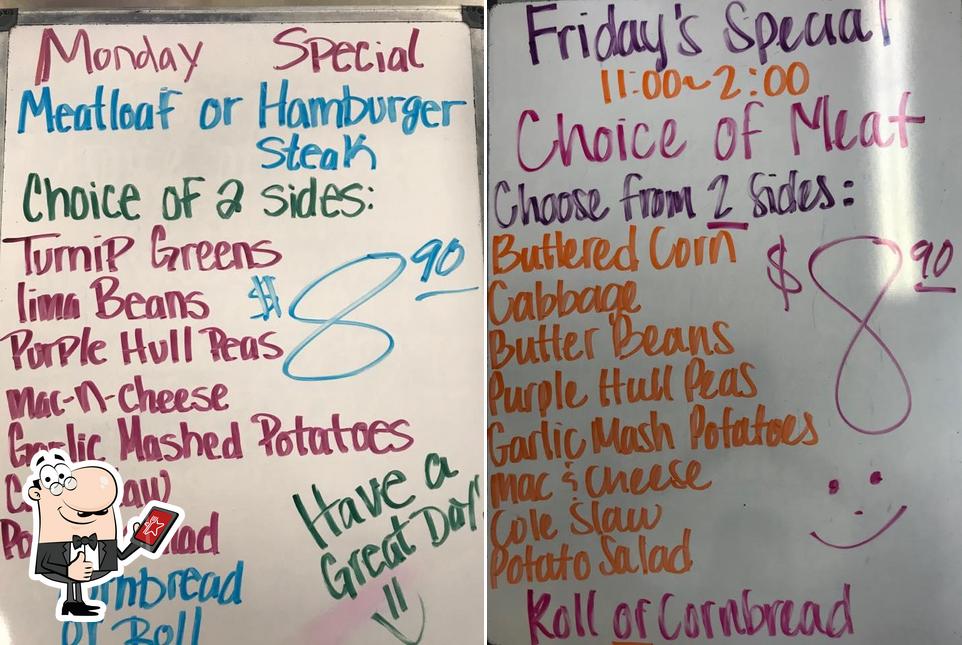 Monday Special
Meatloaf or Hamburger
Steak
Choice of 2 sides:
Turnip Greens
lima Beans
$8.90
Purple Hull Peas
Mac-n-Cheese
Garlic Mashed Potatoes
Have a
Great Day
or Roll
Friday's Special
11:00~2:00
Choice of Meat
Choose from 2 Sides:
Buttered Corn
$8.90
Cabbage
Butter Beans
Purple Hull Peas
Garlic Mash Potatoes
Mac & Cheese
Cole Slaw
Potato Salad
Roll or Cornbread